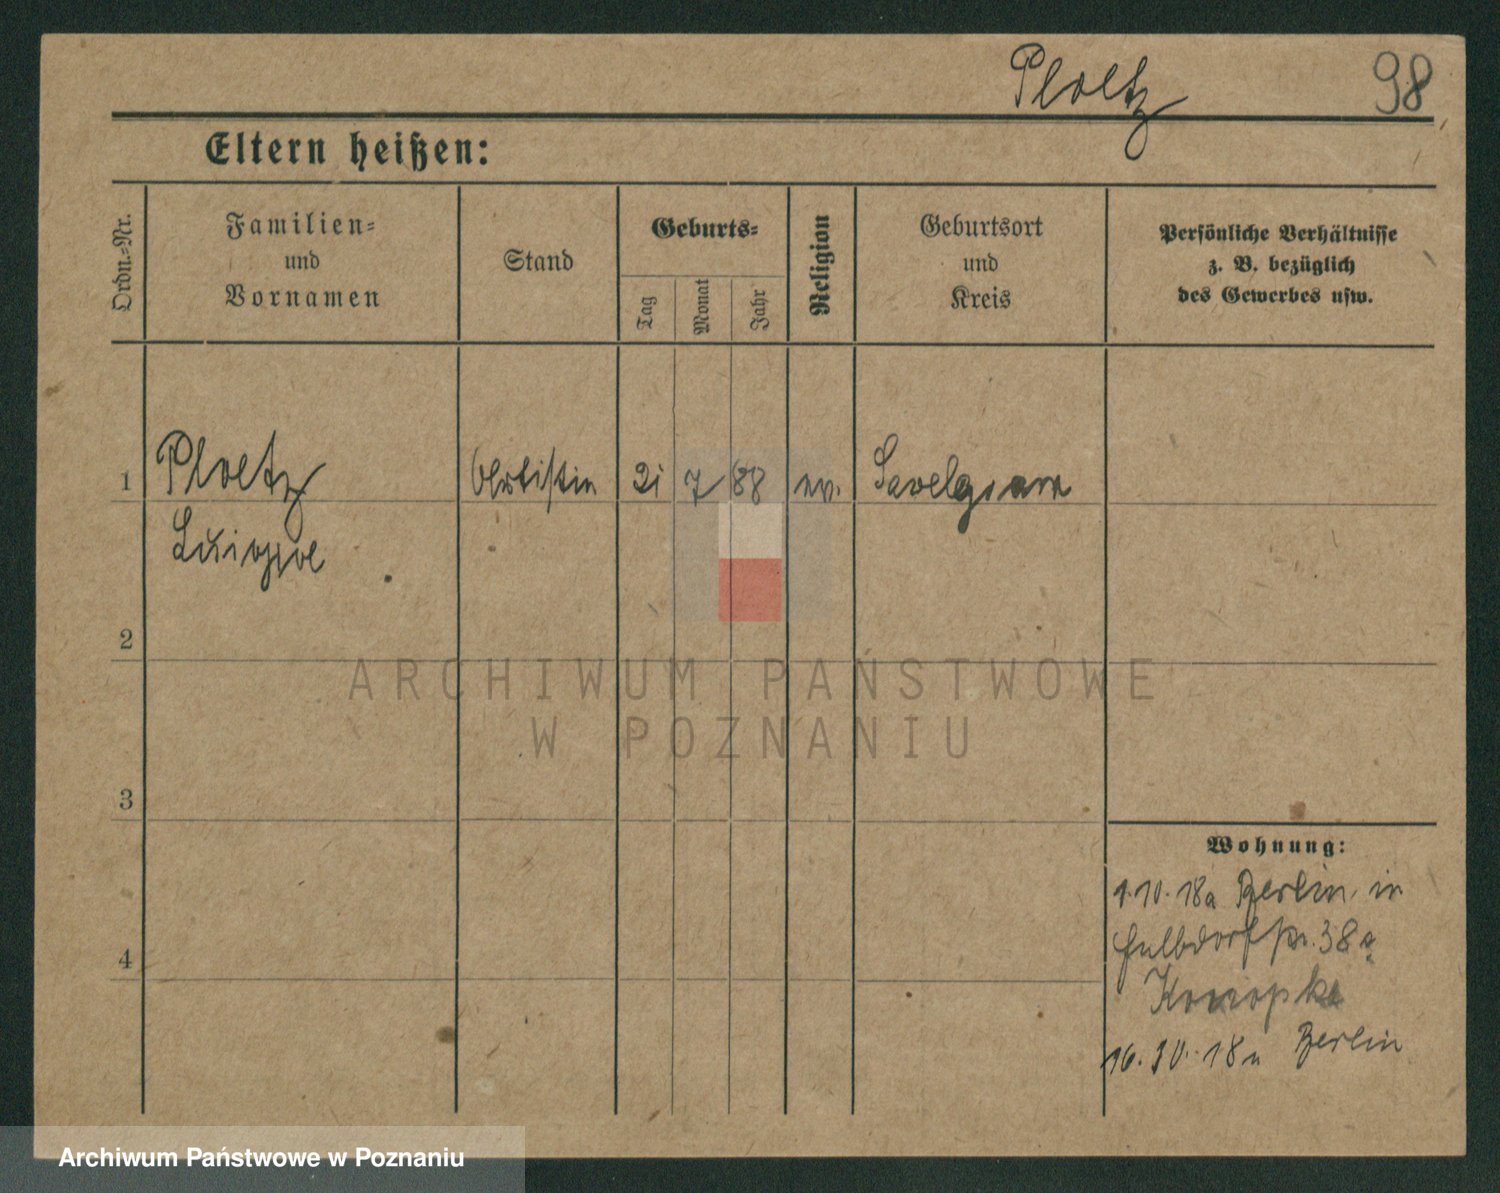 Ploetz 98
Eltern heißen:
Ordn.-Nr.
Familien-
und
Vornamen
Stand
Geburts-
Tag
Monat
Jahr
Religion
Geburtsort
und
Kreis
Persönliche Verhältnisse
z. B. bezüglich
des Gewerbes usw.
1 Ploetz Artistin 21 7 88 ev.
2
3
4
Wohnung:
1.10.18 a Berlin in
38
Konopka
16.10.18 n Berlin
ARCHIWUM PAŃSTWOWE
W POZNANIU
Archiwum Państwowe w Poznaniu